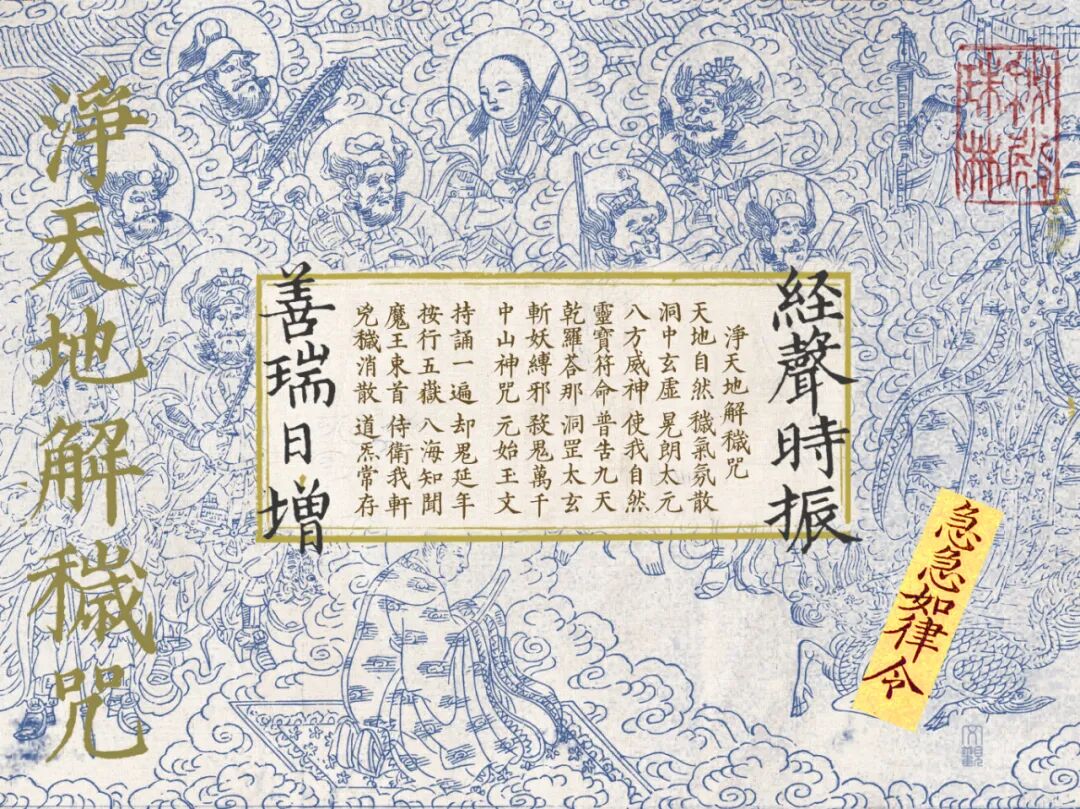 経聲時振
淨天地解穢咒
天地自然 穢氣氛散
洞中玄虛 晃朗太元
八方威神 使我自然
靈寶符命 普告九天
乾羅荅那 洞罡太玄
斬妖縛邪 殺鬼萬千
中山神咒 元始王文
持誦一遍 却鬼延年
按行五嶽 八海知聞
魔王東首 侍衛我軒
兇穢消散 道炁常存
善瑞日增
急急如律令
淨天地解穢咒